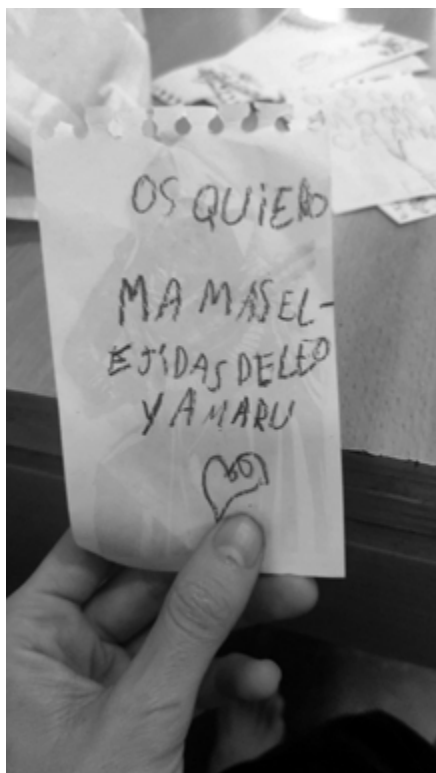 OS QUIERO
MAMAS EL-
EJIDAS DE LEO
Y AMARU